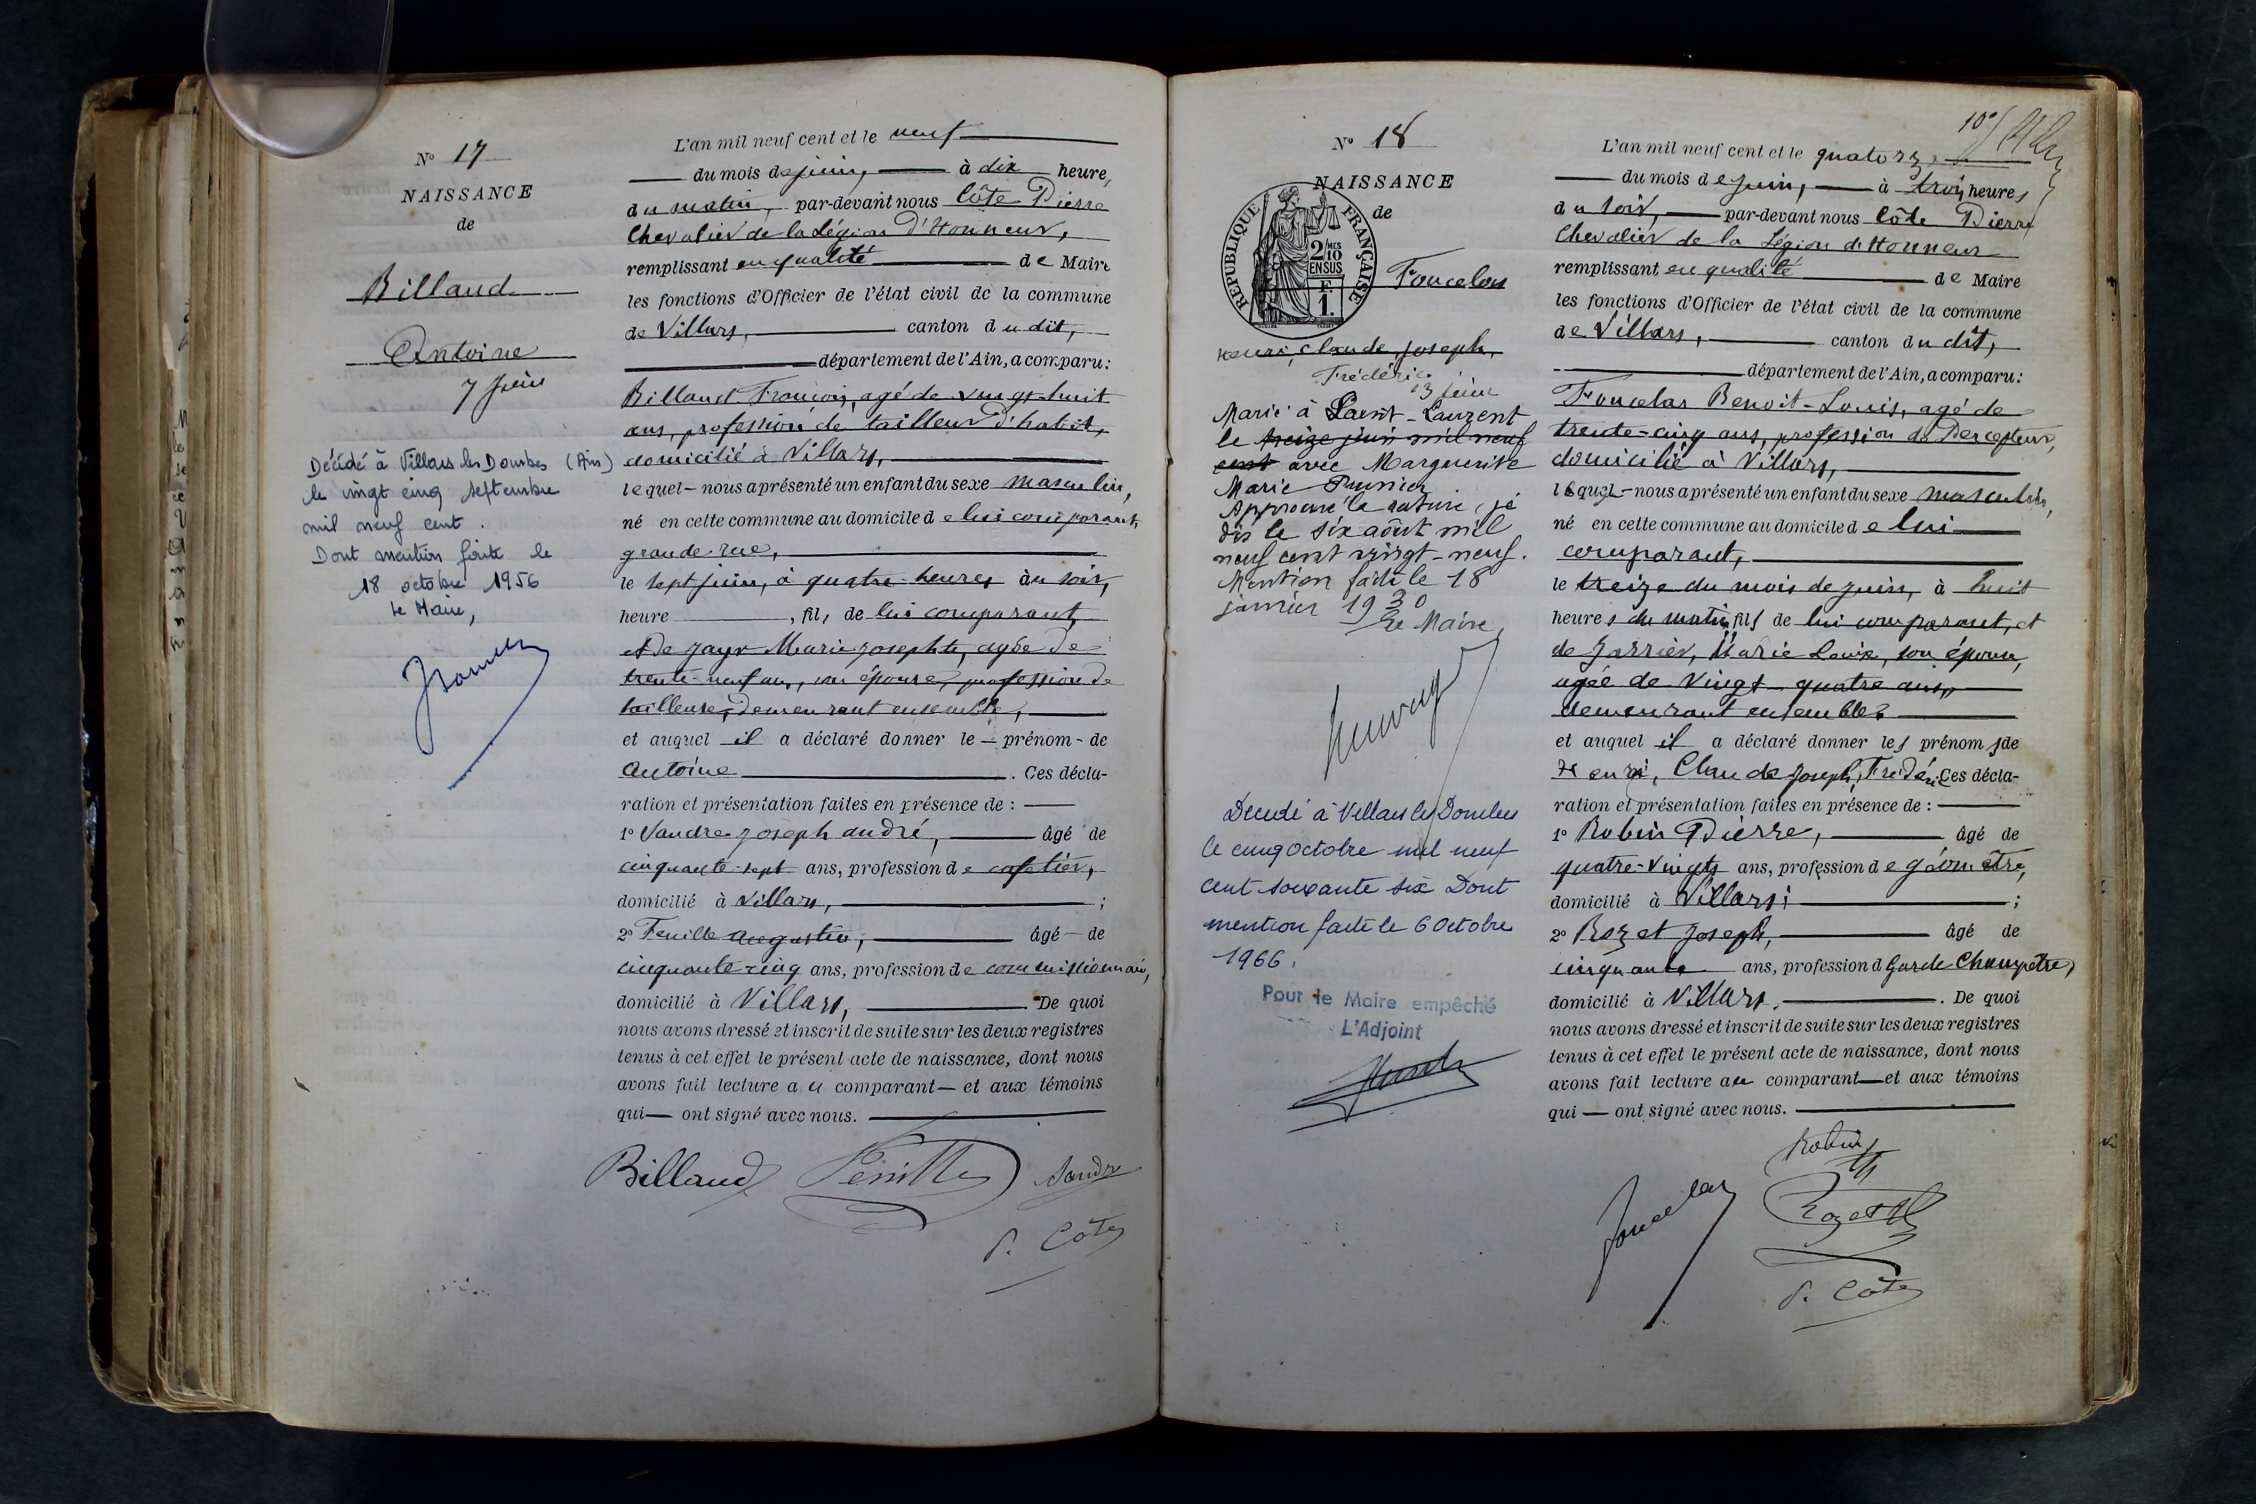 N° 17
NAISSANCE
de
Billaud
Antoine
7 Juin
Décédé à Villars les Dombes (Ain)
le vingt cinq septembre
mil neuf cent .
Dont mention faite le
18 octobre 1956
Le Maire,
L'an mil neuf cent et le neuf
du mois de juin, à dix heures
du matin, par-devant nous Côte Pierre
Chevalier de la Légion d'Honneur,
remplissant en qualité de Maire
les fonctions d'Officier de l'état civil de la commune
de Villars, canton du dit,
département de l'Ain, a comparu:
Billaud François, agé de vingt-huit
ans, profession de tailleur d'habit,
domicilié à Villars,
lequel nous a présenté un enfant du sexe masculin,
né en cette commune au domicile de lui comparant,
grande rue,
le sept juin, à quatre heures du soir,
heure , fils de lui comparant,
et de Jayr Marie Josephte, agée de
trente-neuf ans, son épouse, profession de
tailleuse, demeurant ensemble,
et auquel il a déclaré donner le prénom de
Antoine . Ces décla-
ration et présentation faites en présence de :
1° Vandre Joseph andré, âgé de
cinquante-sept ans, profession de cafetier,
domicilié à Villars, ;
2° Feuille Augustin, âgé de
cinquante-cinq ans, profession de commissionnaire,
domicilié à Villars, De quoi
nous avons dressé et inscrit de suite sur les deux registres
tenus à cet effet le présent acte de naissance, dont nous
avons fait lecture au comparant et aux témoins
qui ont signé avec nous.
Billaud Feuille Vandre
P. Côte
N° 18
NAISSANCE
de
RÉPUBLIQUE FRANÇAISE
2/10 MES
EN SUS
F.
1.
Foucelas
Henri, Claude, Joseph,
Frédéric
13 juin
Marié à Saint-Laurent
le treize juin mil neuf
cent avec Marguerite
Marie Prunier
Approuvé la rature, je
dis le six août mil
neuf cent vingt-neuf.
Mention faite le 18
janvier 1930
Le Maire
Décédé à Villars les Dombes
le cinq octobre mil neuf
cent soixante six Dont
mention faite le 6 Octobre
1966.
Pour le Maire empêché
L'Adjoint
10°
L'an mil neuf cent et le quatorze
du mois de juin, à trois heures
du soir, par-devant nous Côte Pierre
Chevalier de la Légion d'Honneur
remplissant en qualité de Maire
les fonctions d'Officier de l'état civil de la commune
de Villars, canton du dit,
département de l'Ain, a comparu:
Foucelas Benoit-Louis, agé de
trente-cinq ans, profession de Percepteur,
domicilié à Villars,
lequel nous a présenté un enfant du sexe masculin,
né en cette commune au domicile de lui
comparant,
le treize du mois de juin, à huit
heures du matin, fils de lui comparant, et
de Jarrier, Marie Louise, son épouse,
agée de vingt-quatre ans,
demeurant ensemble
et auquel il a déclaré donner les prénoms de
Henri, Claude Joseph, Frédéric Ces décla-
ration et présentation faites en présence de :
1° Robin Pierre, âgé de
quatre-vingts ans, profession de géomètre,
domicilié à Villars; ;
2° Rozet Joseph, âgé de
cinquante ans, profession d Garde Champêtre,
domicilié à Villars, . De quoi
nous avons dressé et inscrit de suite sur les deux registres
tenus à cet effet le présent acte de naissance, dont nous
avons fait lecture au comparant et aux témoins
qui ont signé avec nous.
Robin
Foucelas Rozet
P. Côte